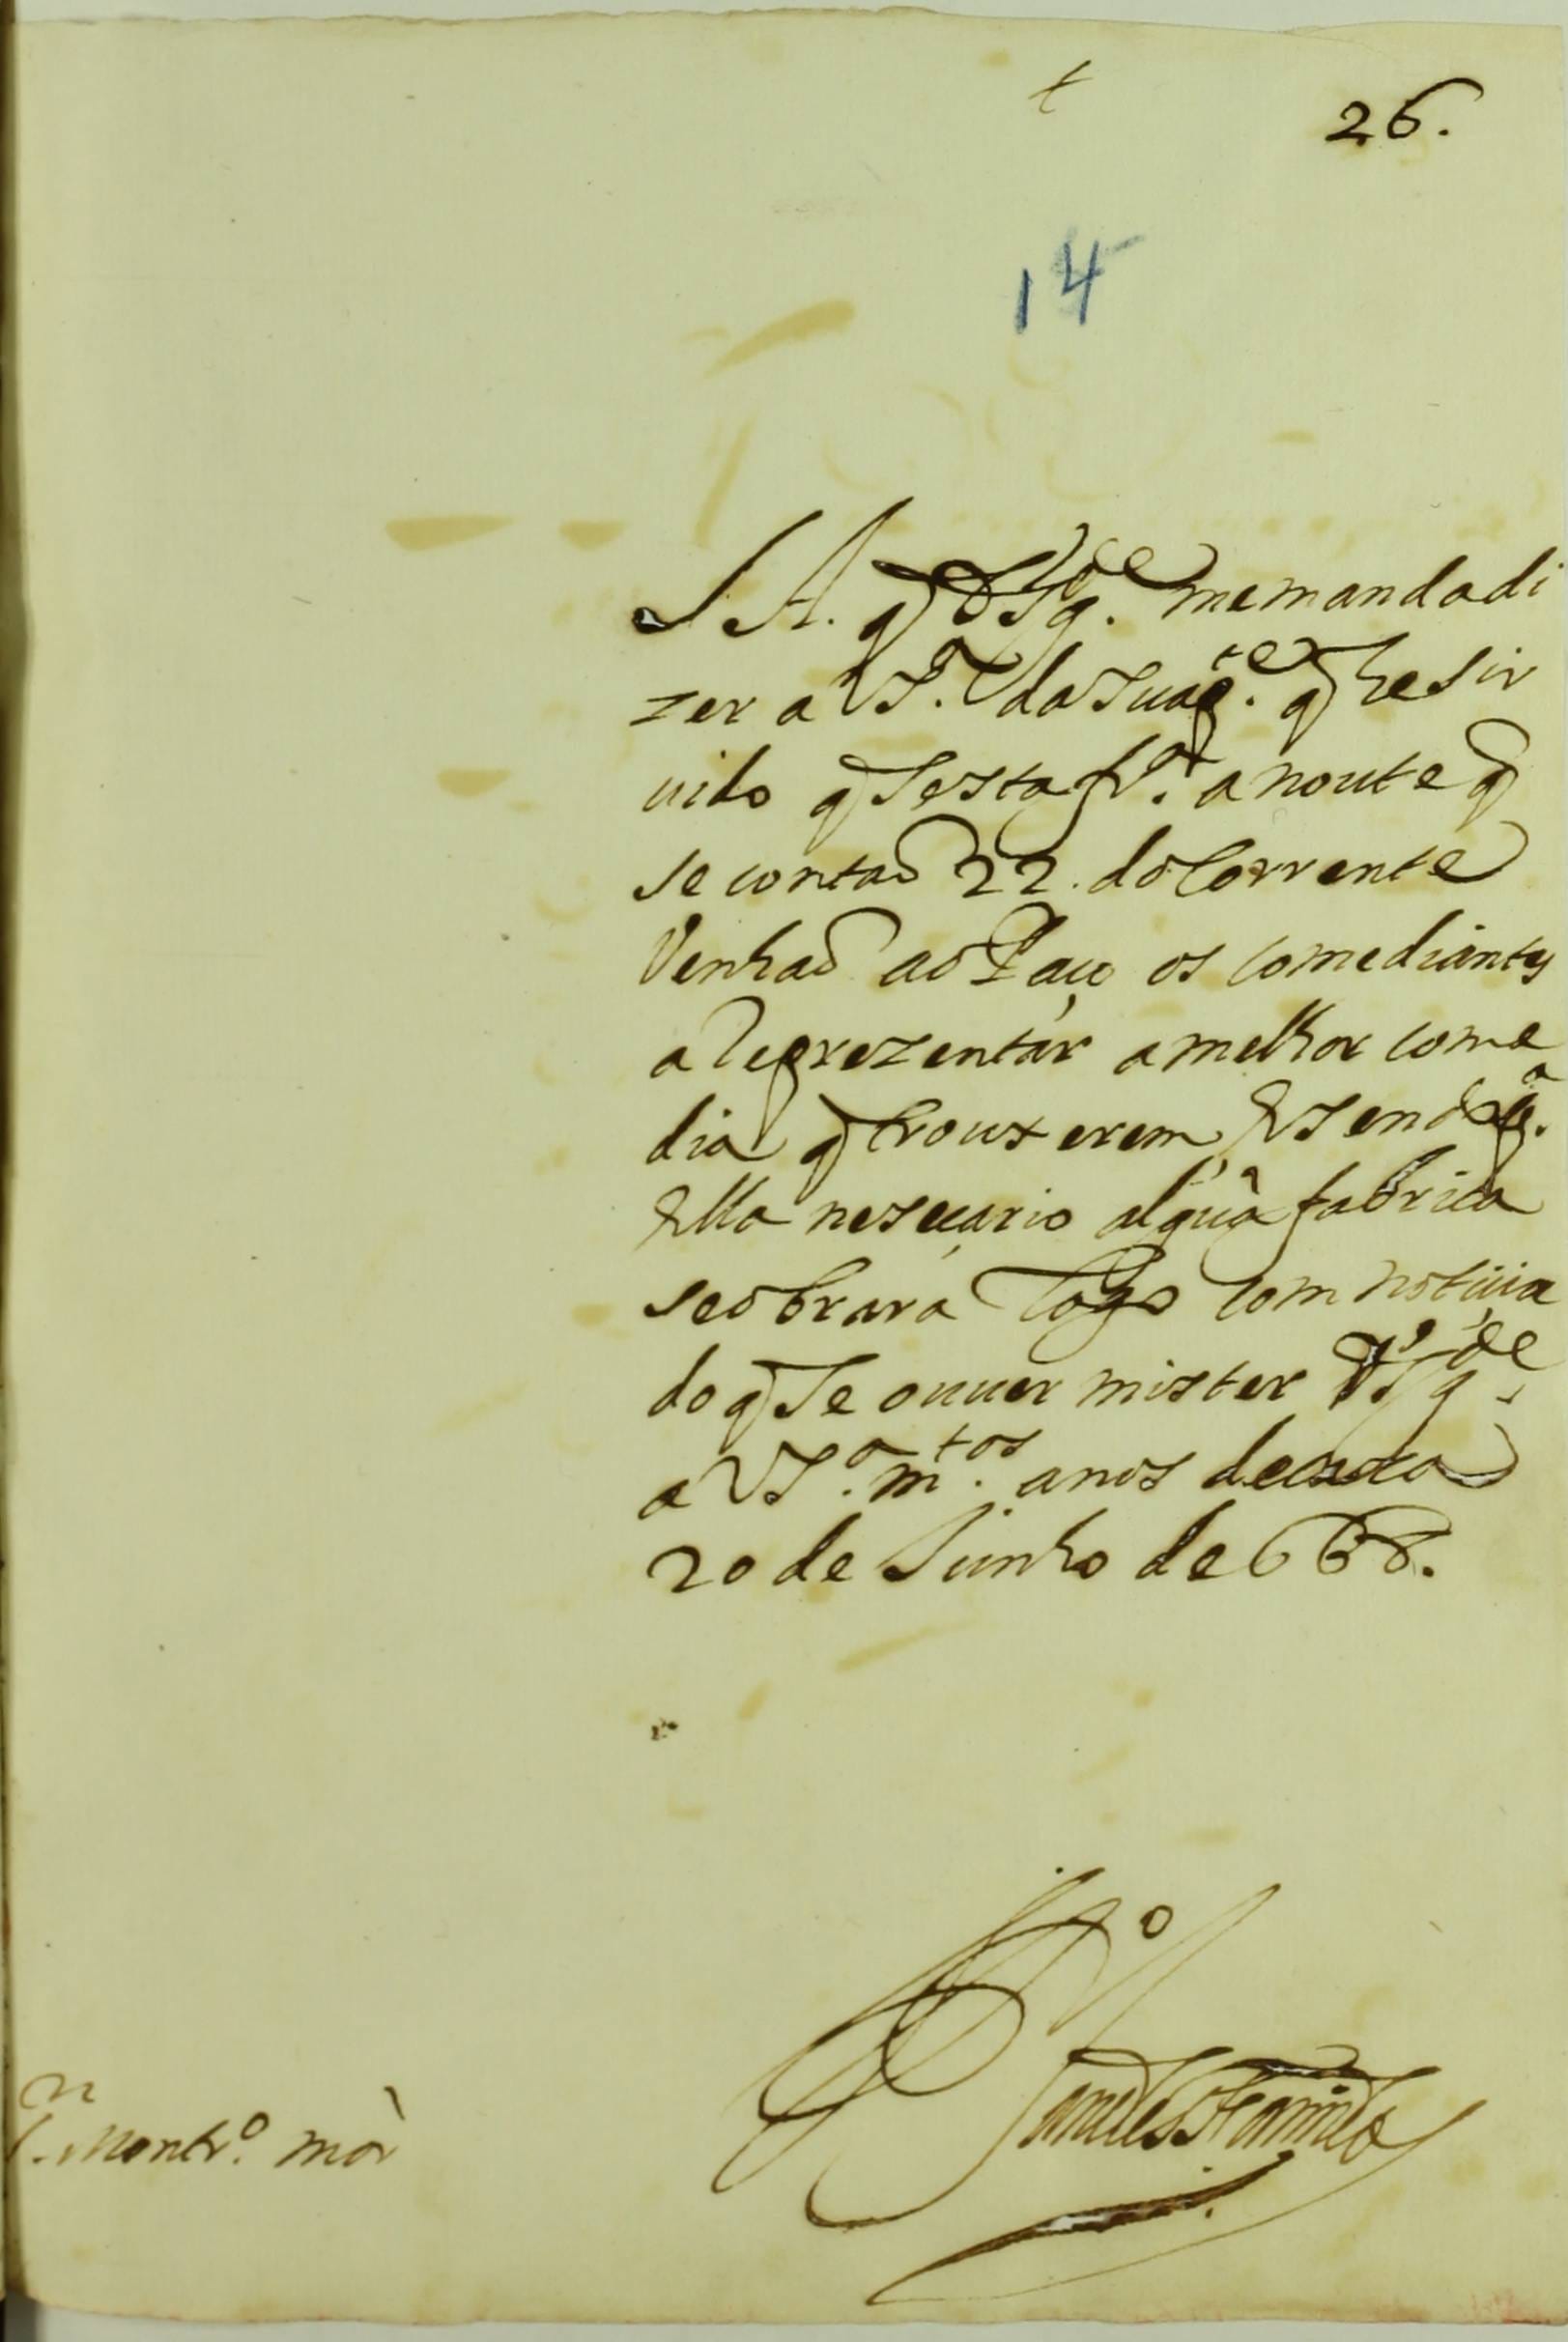 t
26.
14
S A. q Ds g.de me manda di
zer a VS.a da sua p.te q he sir
uido q sesta fr.a a noute q
se contaõ 22. do Corrente
Venhaõ ao Paço os comediantes
a Reprezentar a melhor come
dia q trouxerem, E sendo p.a
Ella nesseçario algũa fabrica
se obrara logo com notiçia
do q se ouuer mister Ds g.de
a VS.a m.tos anos de caza
20 de Junho de 668.
P.o
Montr.o mòr